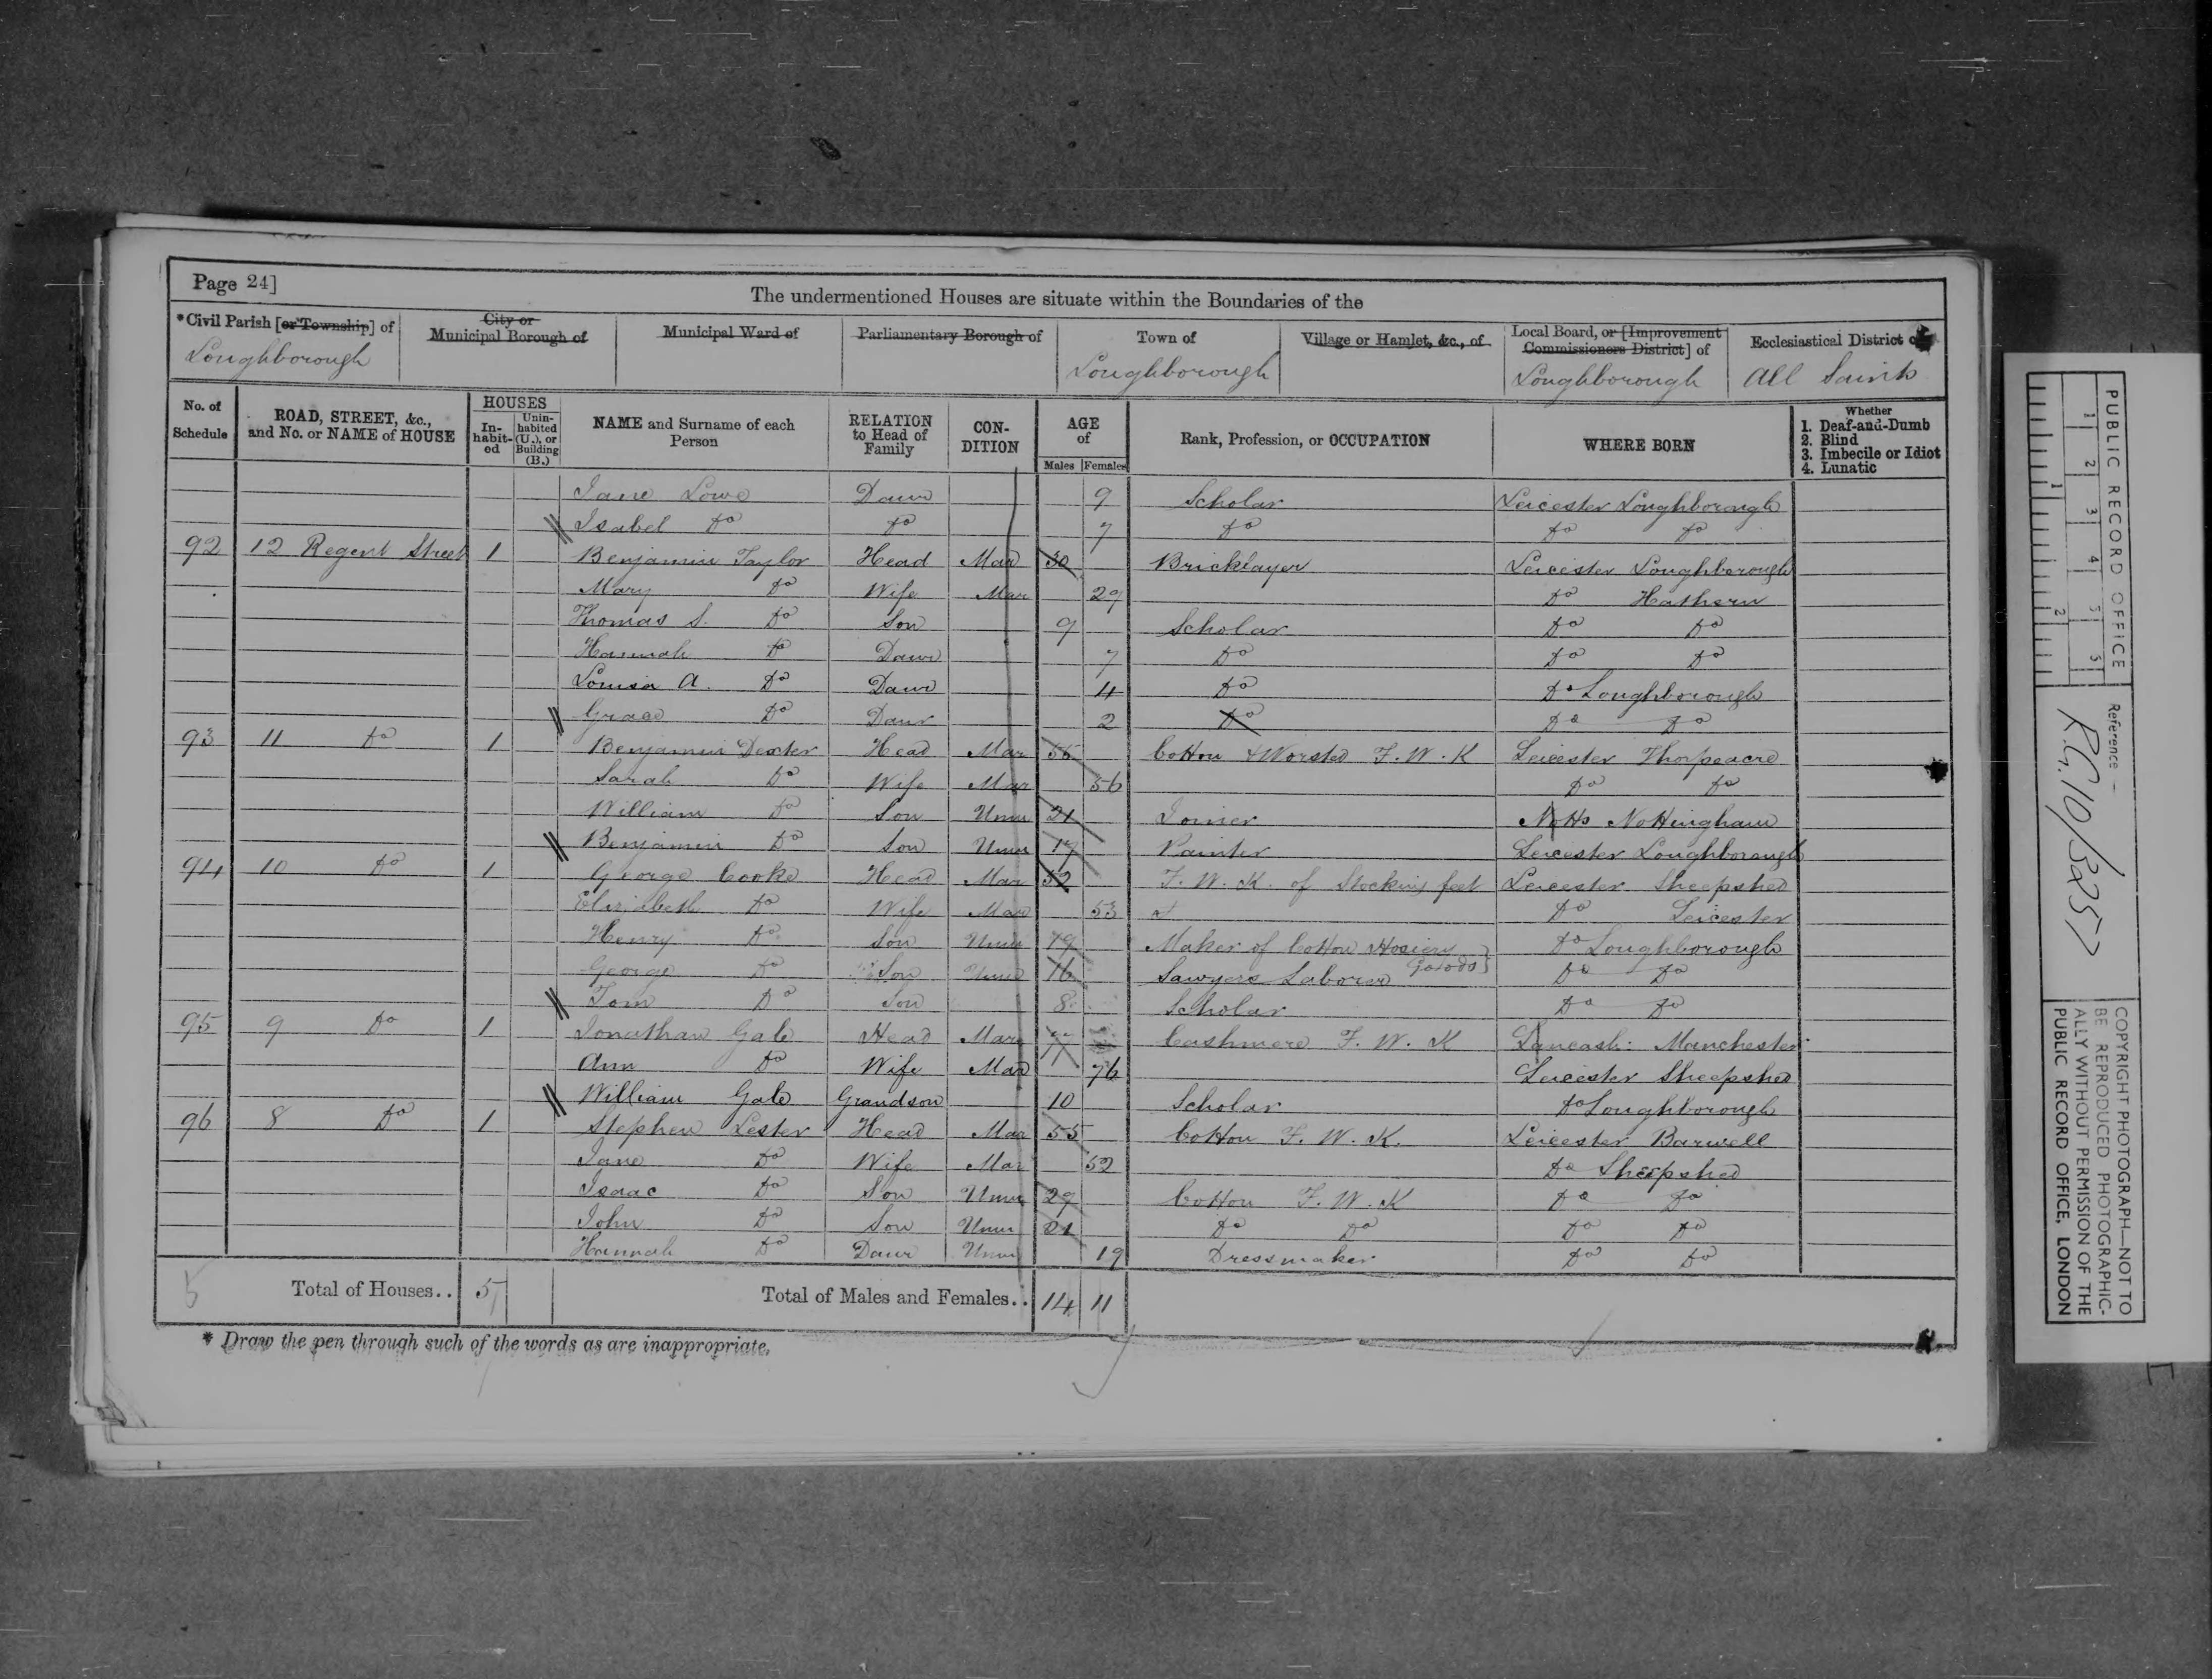 Page 24]
The undermentioned Houses are situate within the Boundaries of the
*Civil Parish [or Township] of
City or Municipal Borough of
Municipal Ward of
Parliamentary Borough of
Town of
Village or Hamlet, &c., of
Local Board, or [Improvement Commissioners District] of
Ecclesiastical District of
Loughborough Loughborough Loughborough All Saints
No. of Schedule
ROAD, STREET, &c., and No. or NAME of HOUSE
HOUSES
In-habit-ed
Unin-habited (U.), or Building (B.)
NAME and Surname of each Person
RELATION to Head of Family
CON-DITION
AGE of
Males Females
Rank, Profession, or OCCUPATION
WHERE BORN
Whether
1. Deaf-and-Dumb
2. Blind
3. Imbecile or Idiot
4. Lunatic
Jane Lowe Daur 9 Scholar Leicester Loughborough
Isabel Do Do 7 Do Do Do
92 12 Regent Street 1 Benjamin Taylor Head Mar 30 Bricklayer Leicester Loughborough
Mary Do Wife Mar 29 Do Hathern
Thomas S. Do Son 9 Scholar Do Do
Hannah Do Daur 7 Do Do Do
Louisa A. Do Daur 4 Do Do Loughborough
Grace Do Daur 2 Do Do Do
93 11 Do 1 Benjamin Dexter Head Mar 56 Cotton & Worsted F. W. K Leicester Thorpeacre
Sarah Do Wife Mar 56 Do Do
William Do Son Unm 21 Joiner Notts Nottingham
Benjamin Do Son Unm 17 Painter Leicester Loughborough
94 10 Do 1 George Cooke Head Mar 52 F. W. K. of Stocking feet Leicester Sheepshed
Elizabeth Do Wife Mar 53 Do Leicester
Henry Do Son Unm 19 Maker of Cotton Hosiery Goods} Do Loughborough
George Do Son Unm 16 Sawyers Laborer Do Do
Tom Do Son 8 Scholar Do Do
95 9 Do 1 Jonathan Gale Head Mar 77 Cashmere F. W. K Lancash: Manchester
Ann Do Wife Mar 76 Leicester Sheepshed
William Gale Grandson 10 Scholar Do Loughborough
96 8 Do 1 Stephen Lester Head Mar 55 Cotton F. W. K. Leicester Barwell
Jane Do Wife Mar 52 Do Sheepshed
Isaac Do Son Unm 29 Cotton F. W. K Do Do
John Do Son Unm 21 Do Do Do Do
Hannah Do Daur Unm 19 Dressmaker Do Do
5 Total of Houses.. 5 Total of Males and Females.. 14 11
* Draw the pen through such of the words as are inappropriate.
PUBLIC RECORD OFFICE
1 2 3 4 5
1 2
Reference:-
R.G. 10/3257
COPYRIGHT PHOTOGRAPH—NOT TO
BE REPRODUCED PHOTOGRAPHIC-
ALLY WITHOUT PERMISSION OF THE
PUBLIC RECORD OFFICE, LONDON